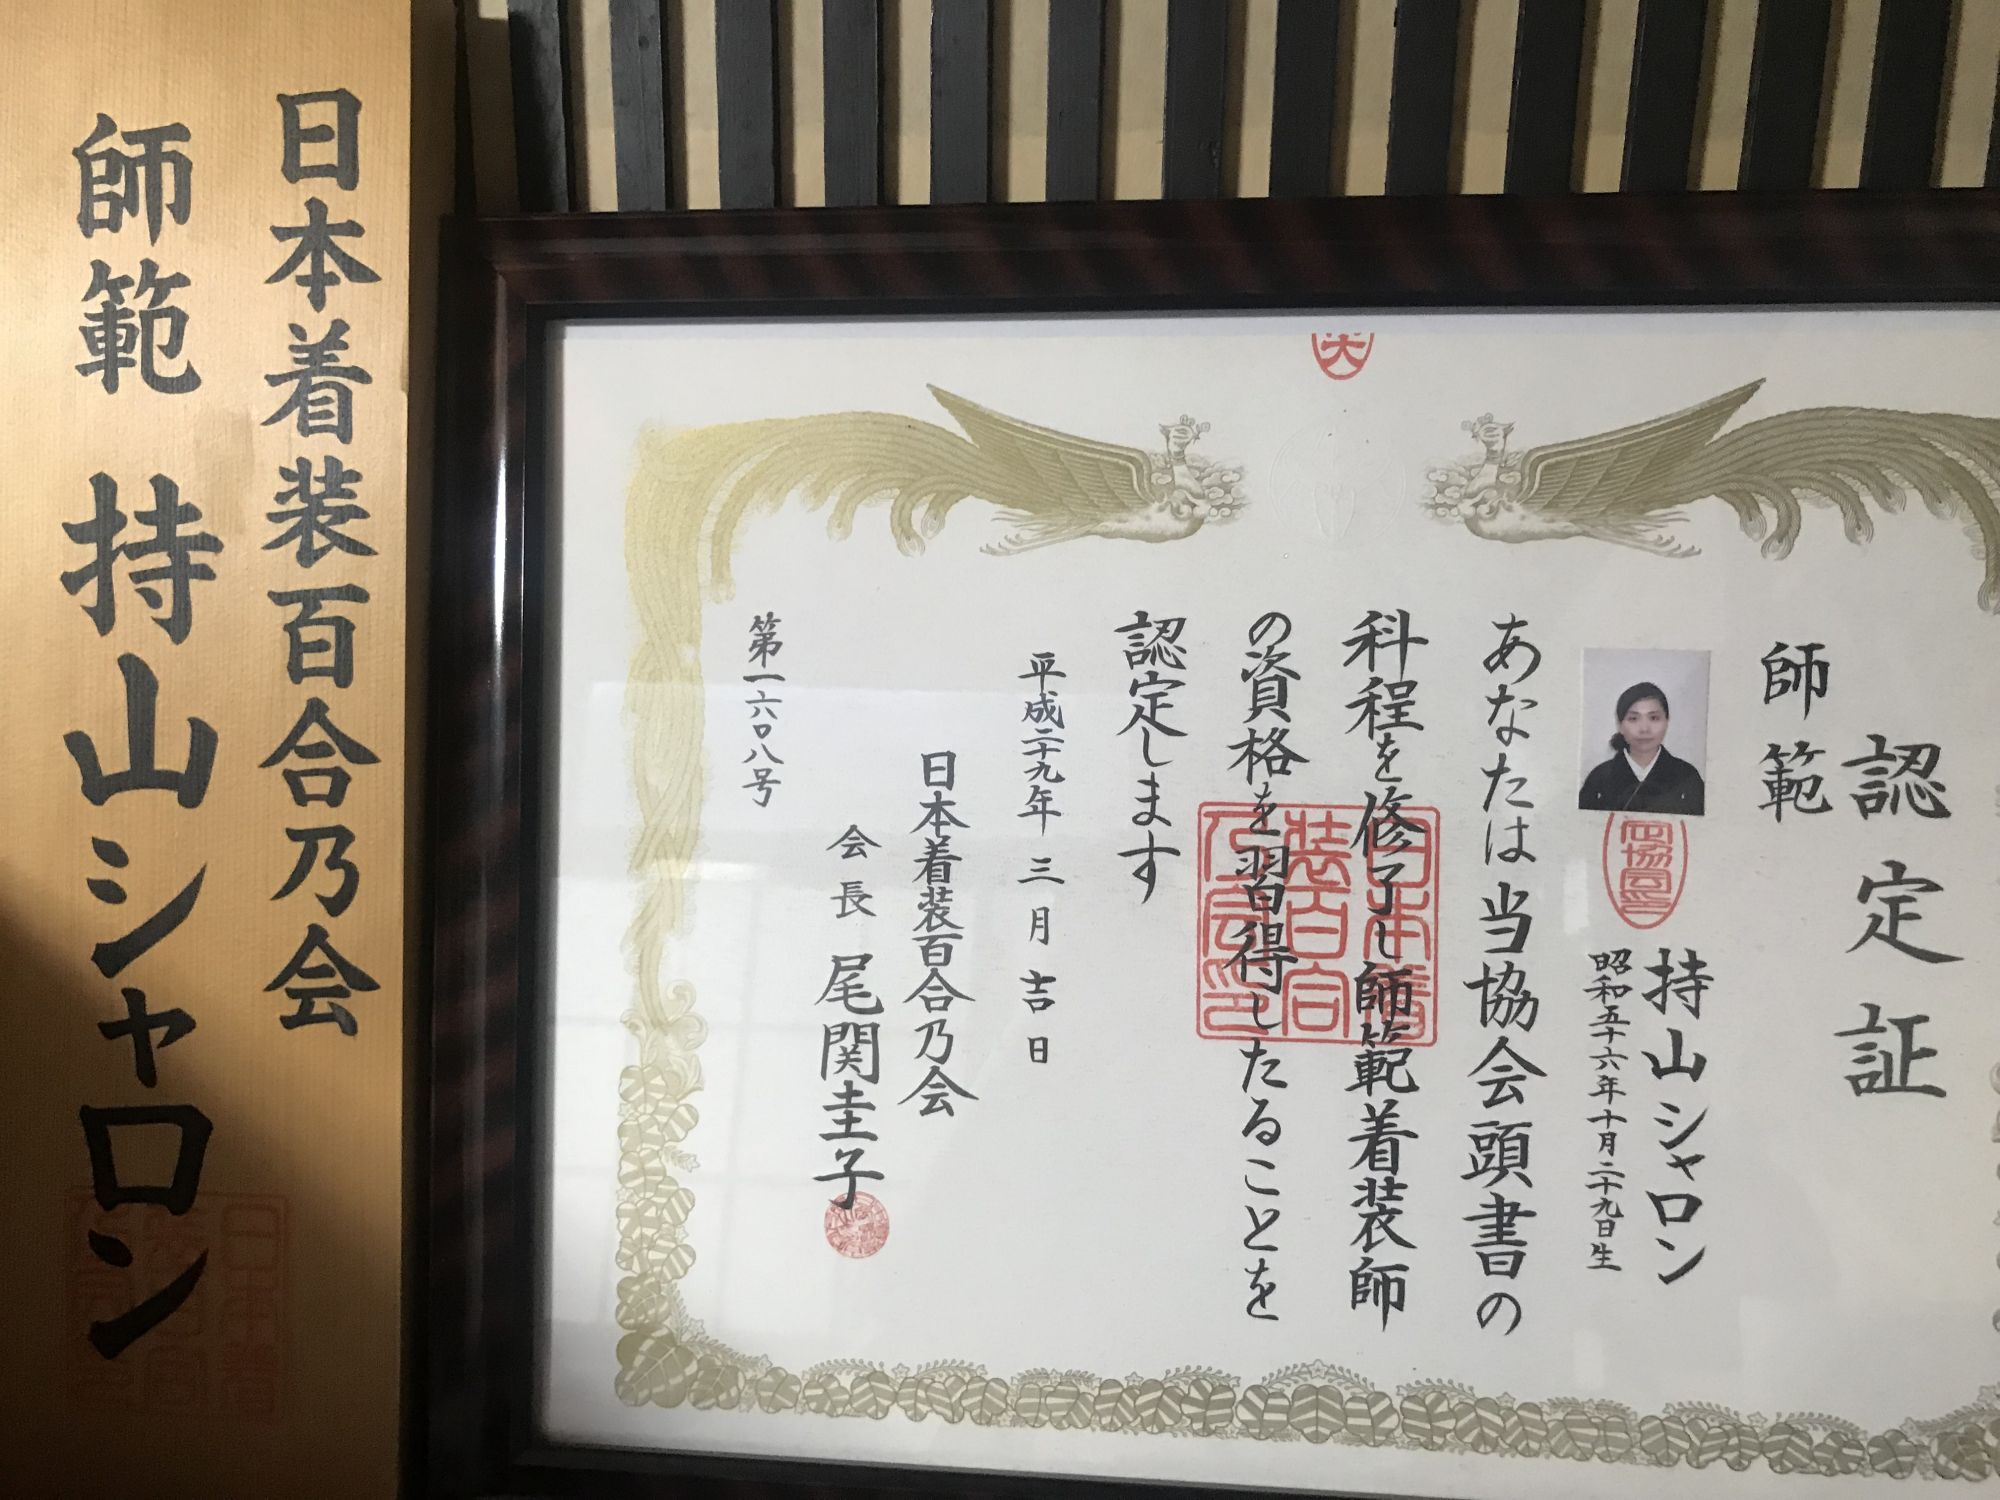 日本着装百合乃会
師範 持山シャロン
認定証
師範
持山シャロン
昭和五十六年十月二十九日生
あなたは当協会頭書の
科程を修了し師範着装師
の資格を習得したることを
認定します
平成二十九年三月吉日
日本着装百合乃会
会長 尾関圭子
第一六〇八号